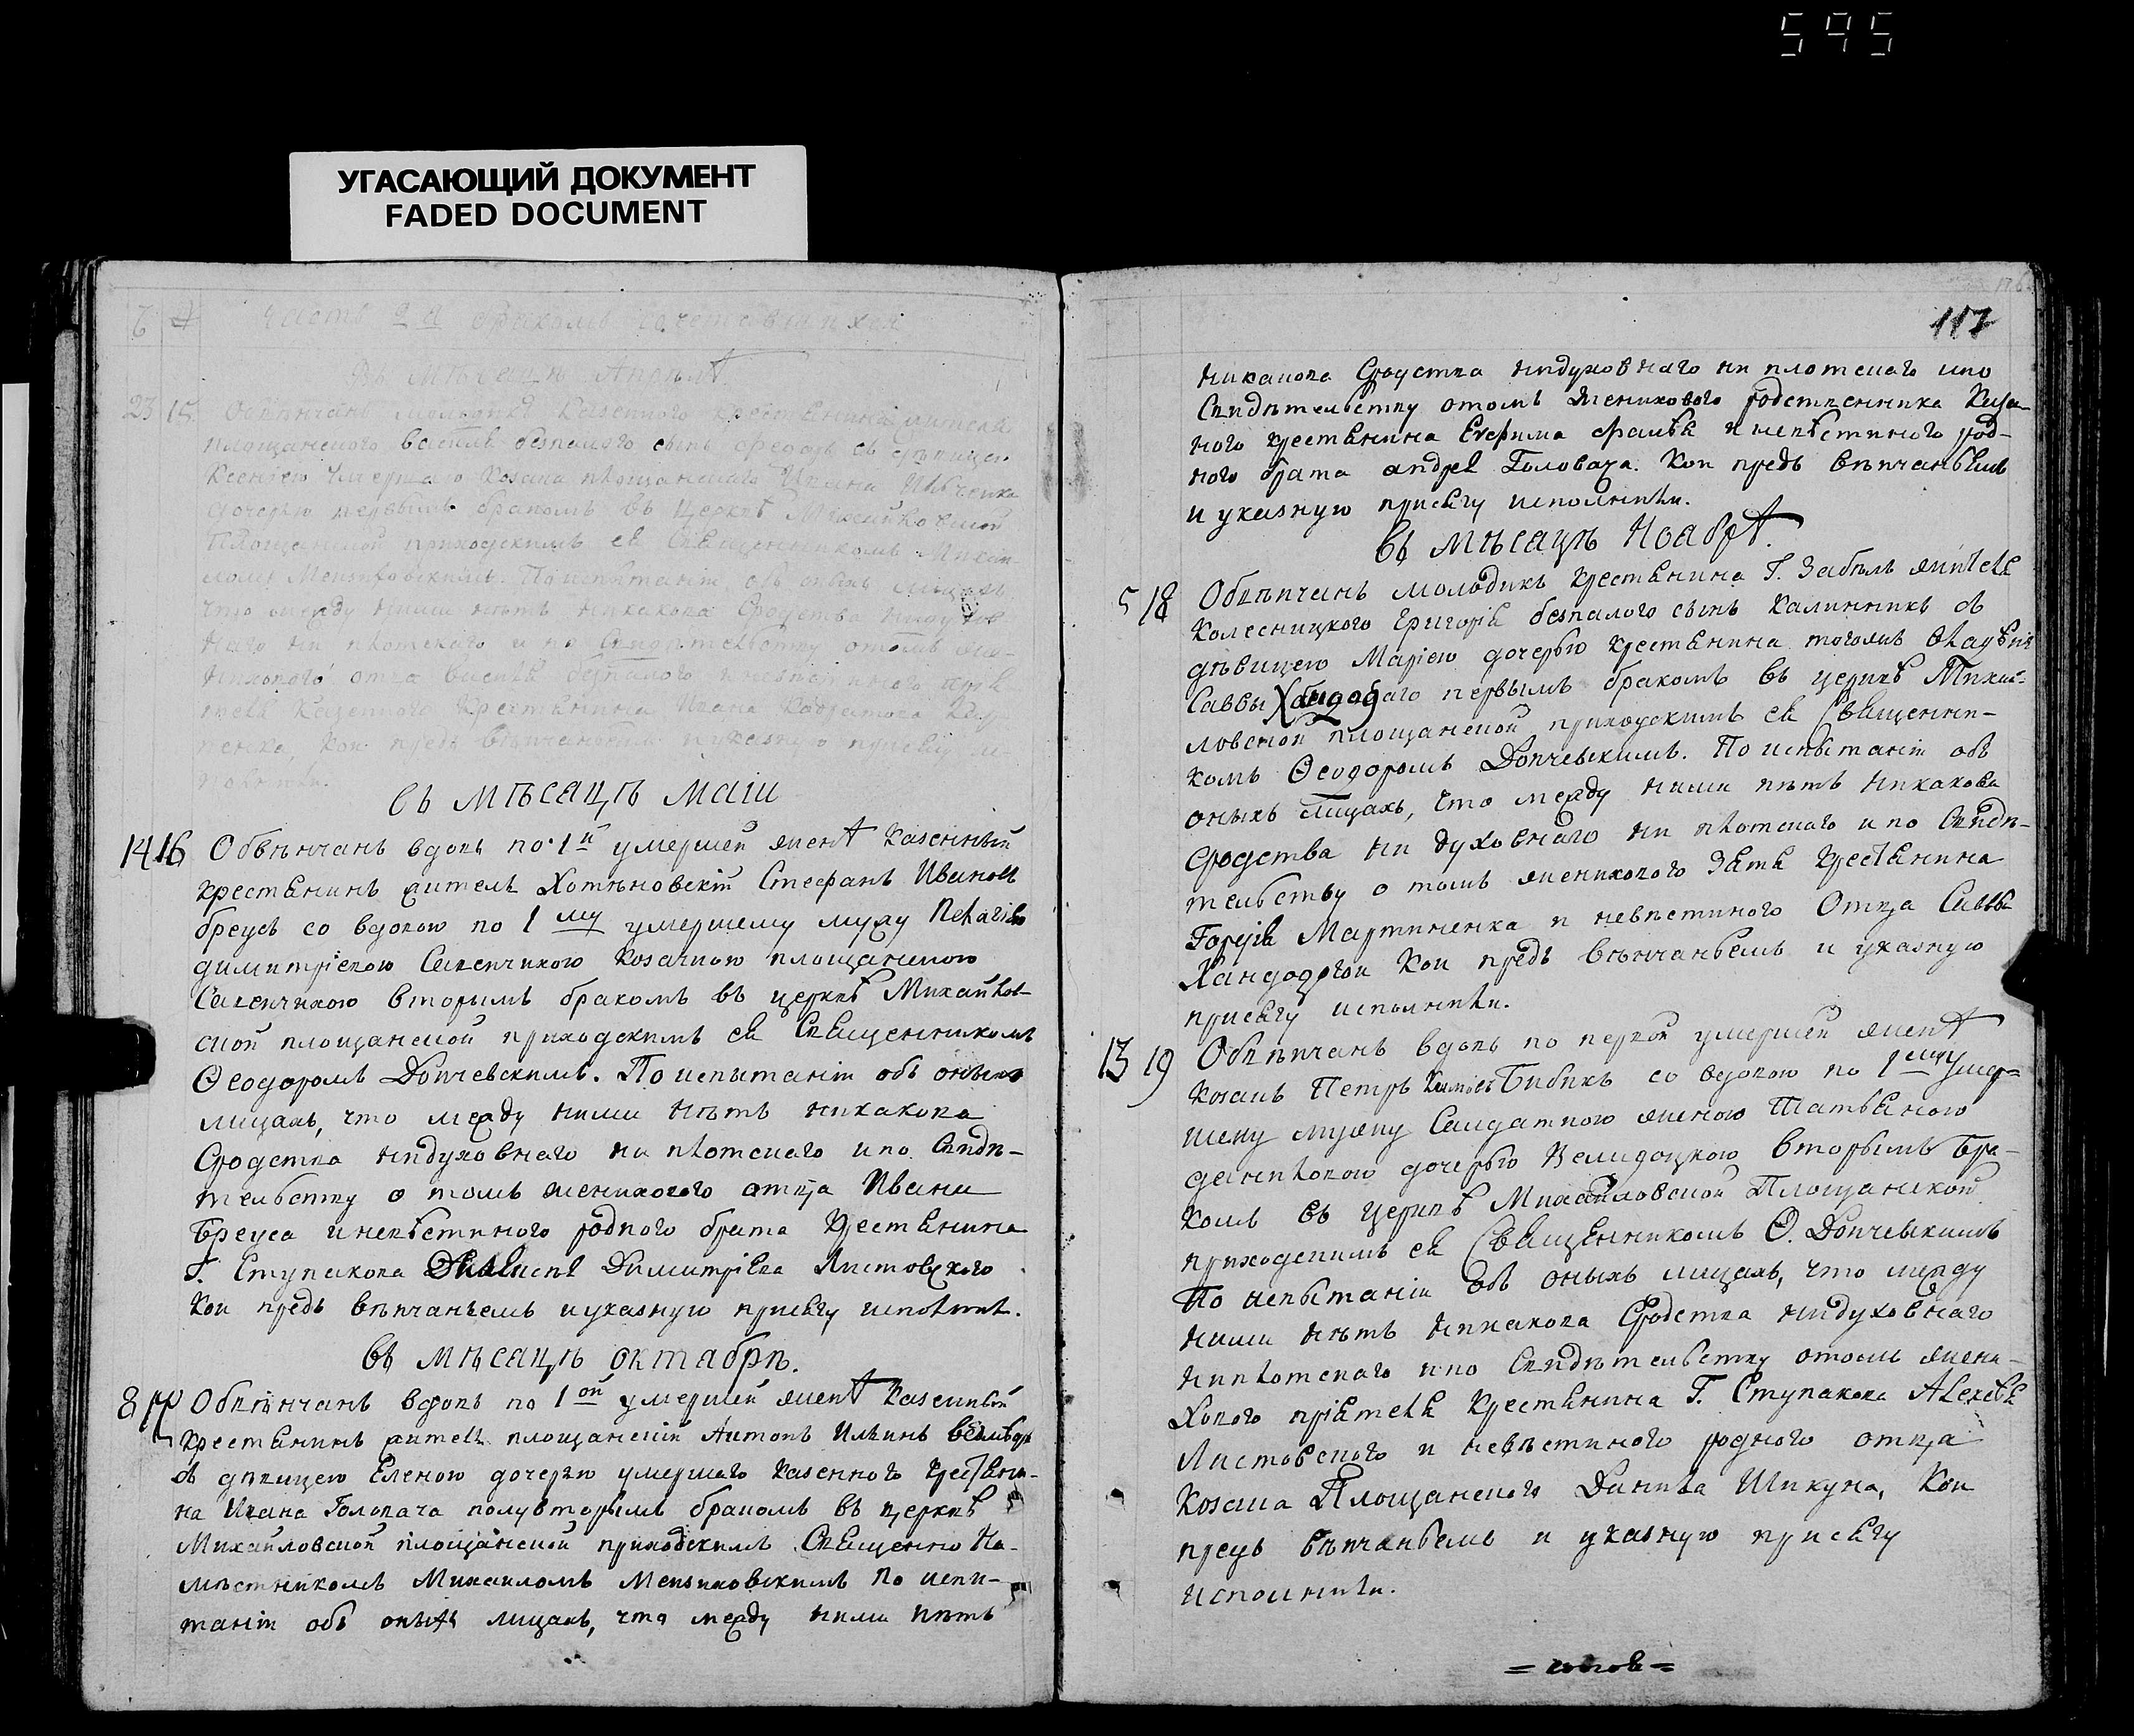 595
УГАСАЮЩИЙ ДОКУМЕНТ
FADED DOCUMENT
Часть 2а бракомъ сочетавшихся
Въ мѣсяцѣ Апрѣлѣ
23 15 Обвѣнчанъ молодикъ казенного крестянина жителя
площанского василія безпалого сынъ федоръ съ дѣвицею
Ксеніею умершаго козака площанского Ивана
дочерью первымъ бракомъ въ церквѣ Михайловской
Площанской приходскимъ ея Священникомъ Михаи-
ломъ Мензиховскимъ. По испытаніи объ оныхъ лицахъ
что между ними нѣтъ никакова Сродства нидухов
наго ни плотскаго и по Свидѣтельству отомъ же-
нихового отца василія безпалого и невѣстиного
Казенного Крестянина Ивана
кои предъ вѣнчаньемъ и указную присягу и-
полнили.
въ мѣсяцѣ маіи
14 16 Обвѣнчанъ вдовъ по 1й умершей женѣ казенный
крестянинъ житель Хотѣновскій Стефанъ Ивановъ
бреусъ со вдовою по 1му умершему мужу Пелагіею
димитріевою Савенчихою козачкою площанскою
Савенчихою вторымъ бракомъ въ церквѣ Михайлов-
ской площанской приходскимъ ея Священникомъ
Ѳеодоромъ Допчевскимъ. По испытаніи объ оныхъ
лицахъ, что между ними нѣтъ никакова
Сродства нидуховнаго ни плотскаго и по Свидѣ-
тельству о томъ женихового отца Ивана
Бреуса и невѣстиного родного брата Крестянина
Г. Ступакова Димитріева Листовского
кои предъ вѣнчаньемъ и указную присягу исполнил.
въ мѣсяцѣ октябрѣ.
8 17 Обвѣнчанъ вдовъ по 1ой умершей женѣ казенный
крестянинъ житель площанскій Антонъ Илинъ
съ дѣвицею Еленою дочерью умершаго казенного крестяни-
на Ивана Головача полувторымъ бракомъ въ церквѣ
Михайловской площанской приходскимъ Священно На-
мѣстникомъ Михаиломъ Мензиховскимъ по испы-
таніи объ оныхъ лицахъ, что между ними нѣтъ
117
никакова Сродства нидуховнаго ни плотскаго ипо
Свидѣтельству отомъ женихового родственника Казе-
ного крестянина Евфима и невѣстиного род-
ного брата андрея Головача. Кои предъ вѣнчаньемъ
и указную присягу исполнили.
въ мѣсяцѣ Ноябрѣ.
5 18 Обвѣнчанъ молодикъ крестянина Г. Забѣлы жителя
Колесницкого Григорія безпалого сынъ Калинникъ съ
дѣвицею Маріею дочерью крестянина тогожъ владѣнія
Саввы первымъ бракомъ въ церквѣ Михай-
ловской площанской приходскимъ ея Священни-
комъ Ѳеодоромъ Допчевскимъ. По испытаніи объ
оныхъ лицахъ, что между ними нѣтъ никакова
Сродства ни духовнаго ни плотскаго и по Свидѣ-
тельству о томъ женихового зятя крестянина
Мартиненка и невѣстиного Отца Саввы
кои предъ вѣнчаньемъ и указную
присягу исполнили.
13 19 Обвѣнчанъ вдовъ по первой умершей женѣ
козакъ Петръ Бибикъ со вдовою по 1му умер-
шему мужу Салдаткою женою Татьяною
даниловою дочерью вторымъ бра-
комъ въ церквѣ Михайловской Площанской
приходскимъ ея Священникомъ Ѳ. Допчевскимъ
По испытаніи объ оныхъ лицахъ, что между
ними нѣтъ никакова Сродства нидуховнаго
ниплотскаго ипо Свидѣтельству отомъ жени-
хового пріятеля Крестянина Г. Ступакова Алексѣя
Листовского и невѣстиного родного отца
козака Площанского Данила Шикуна, кои
предъ вѣнчаньемъ и указную присягу
исполнили.